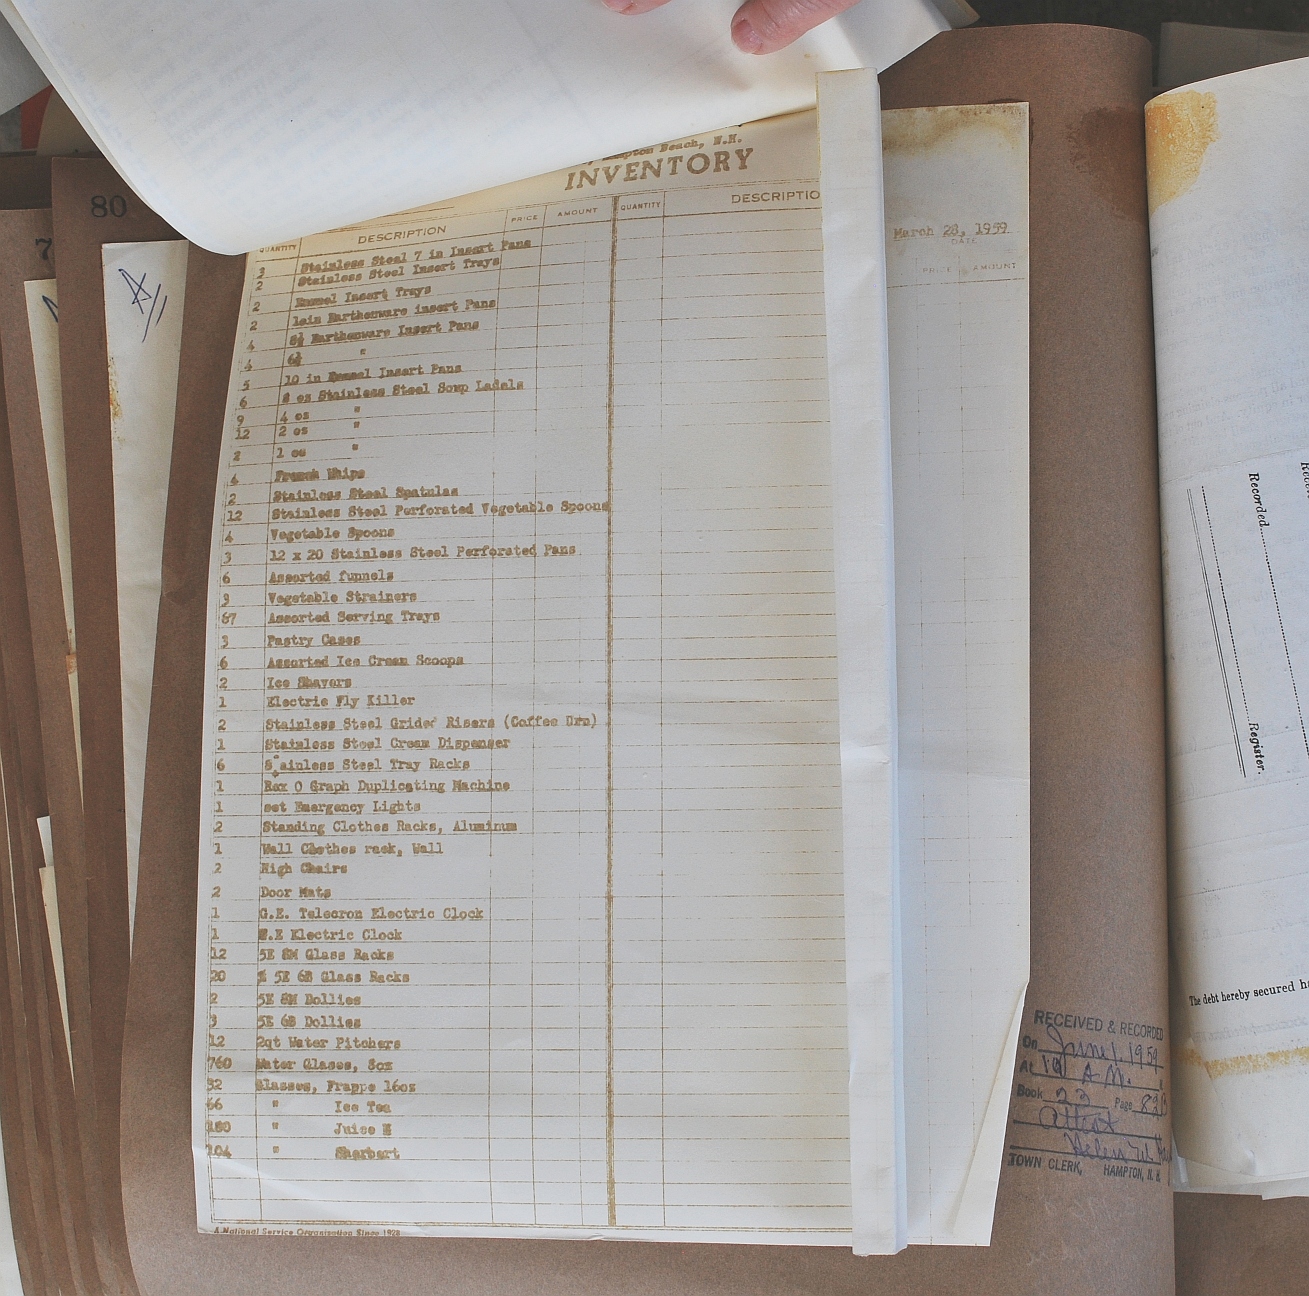 80
7
A/
Beach, N.H.
INVENTORY
March 28, 1959
DATE
QUANTITY DESCRIPTION PRICE AMOUNT QUANTITY DESCRIPTIO PRICE AMOUNT
3 Stainless Steel 7 in Insert Pans
2 Stainless Steel Insert Trays
2 Enamel Insert Trays
2 Earthenware insert Pans
4 8½ Earthenware Insert Pans
4 6½ "
5 10 in Enamel Insert Pans
6 8 oz Stainless Steel Soup Ladels
9 4 oz "
12 2 oz "
2 1 oz "
4 French Whips
2 Stainless Steel Spatulas
12 Stainless Steel Perforated Vegetable Spoons
4 Vegetable Spoons
3 12 x 20 Stainless Steel Perforated Pans
6 Assorted funnels
3 Vegetable Strainers
67 Assorted Serving Trays
3 Pastry Cases
6 Assorted Ice Cream Scoops
2 Ice Shavers
1 Electric Fly Killer
2 Stainless Steel Grided Risers (Coffee Urn)
1 Stainless Steel Cream Dispenser
6 Stainless Steel Tray Racks
1 Rex O Graph Duplicating Machine
1 set Emergency Lights
2 Standing Clothes Racks, Aluminum
1 Wall Clothes rack, Wall
2 High Chairs
2 Door Mats
1 G.E. Telecron Electric Clock
1 G.E Electric Clock
12 5E 8M Glass Racks
20 5E 6B Glass Racks
2 5E 8M Dollies
3 5E 6B Dollies
12 2qt Water Pitchers
760 Water Glasses, 8oz
32 Glasses, Frappe 16oz
66 " Ice Tea
180 " Juice
104 " Sherbert
A National Service Organization Since 1928
RECEIVED & RECORDED
On June 1, 1959
At 10 A.M.
Book 23 Page
Attest
Helen W.
TOWN CLERK, HAMPTON, N.H.
Recorded
Register.
The debt hereby secured